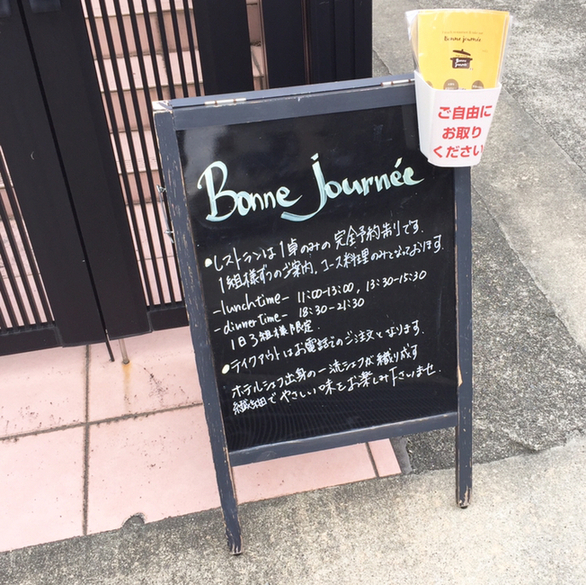 Bonne journée
Bonne
Journée
ご自由に
お取り
ください
Bonne Journée
●レストランは1卓のみの完全予約制です.
1組様ずつのご案内、コース料理のみとなっております.
-lunch time- 11:00-13:00, 13:30-15:30
-dinner time- 18:30-21:30
1日3組様限定
●テイクアウトはお電話でのご注文となります.
ホテルシェフ出身の一流シェフが織り成す
繊細でやさしい味をお楽しみ下さいませ.